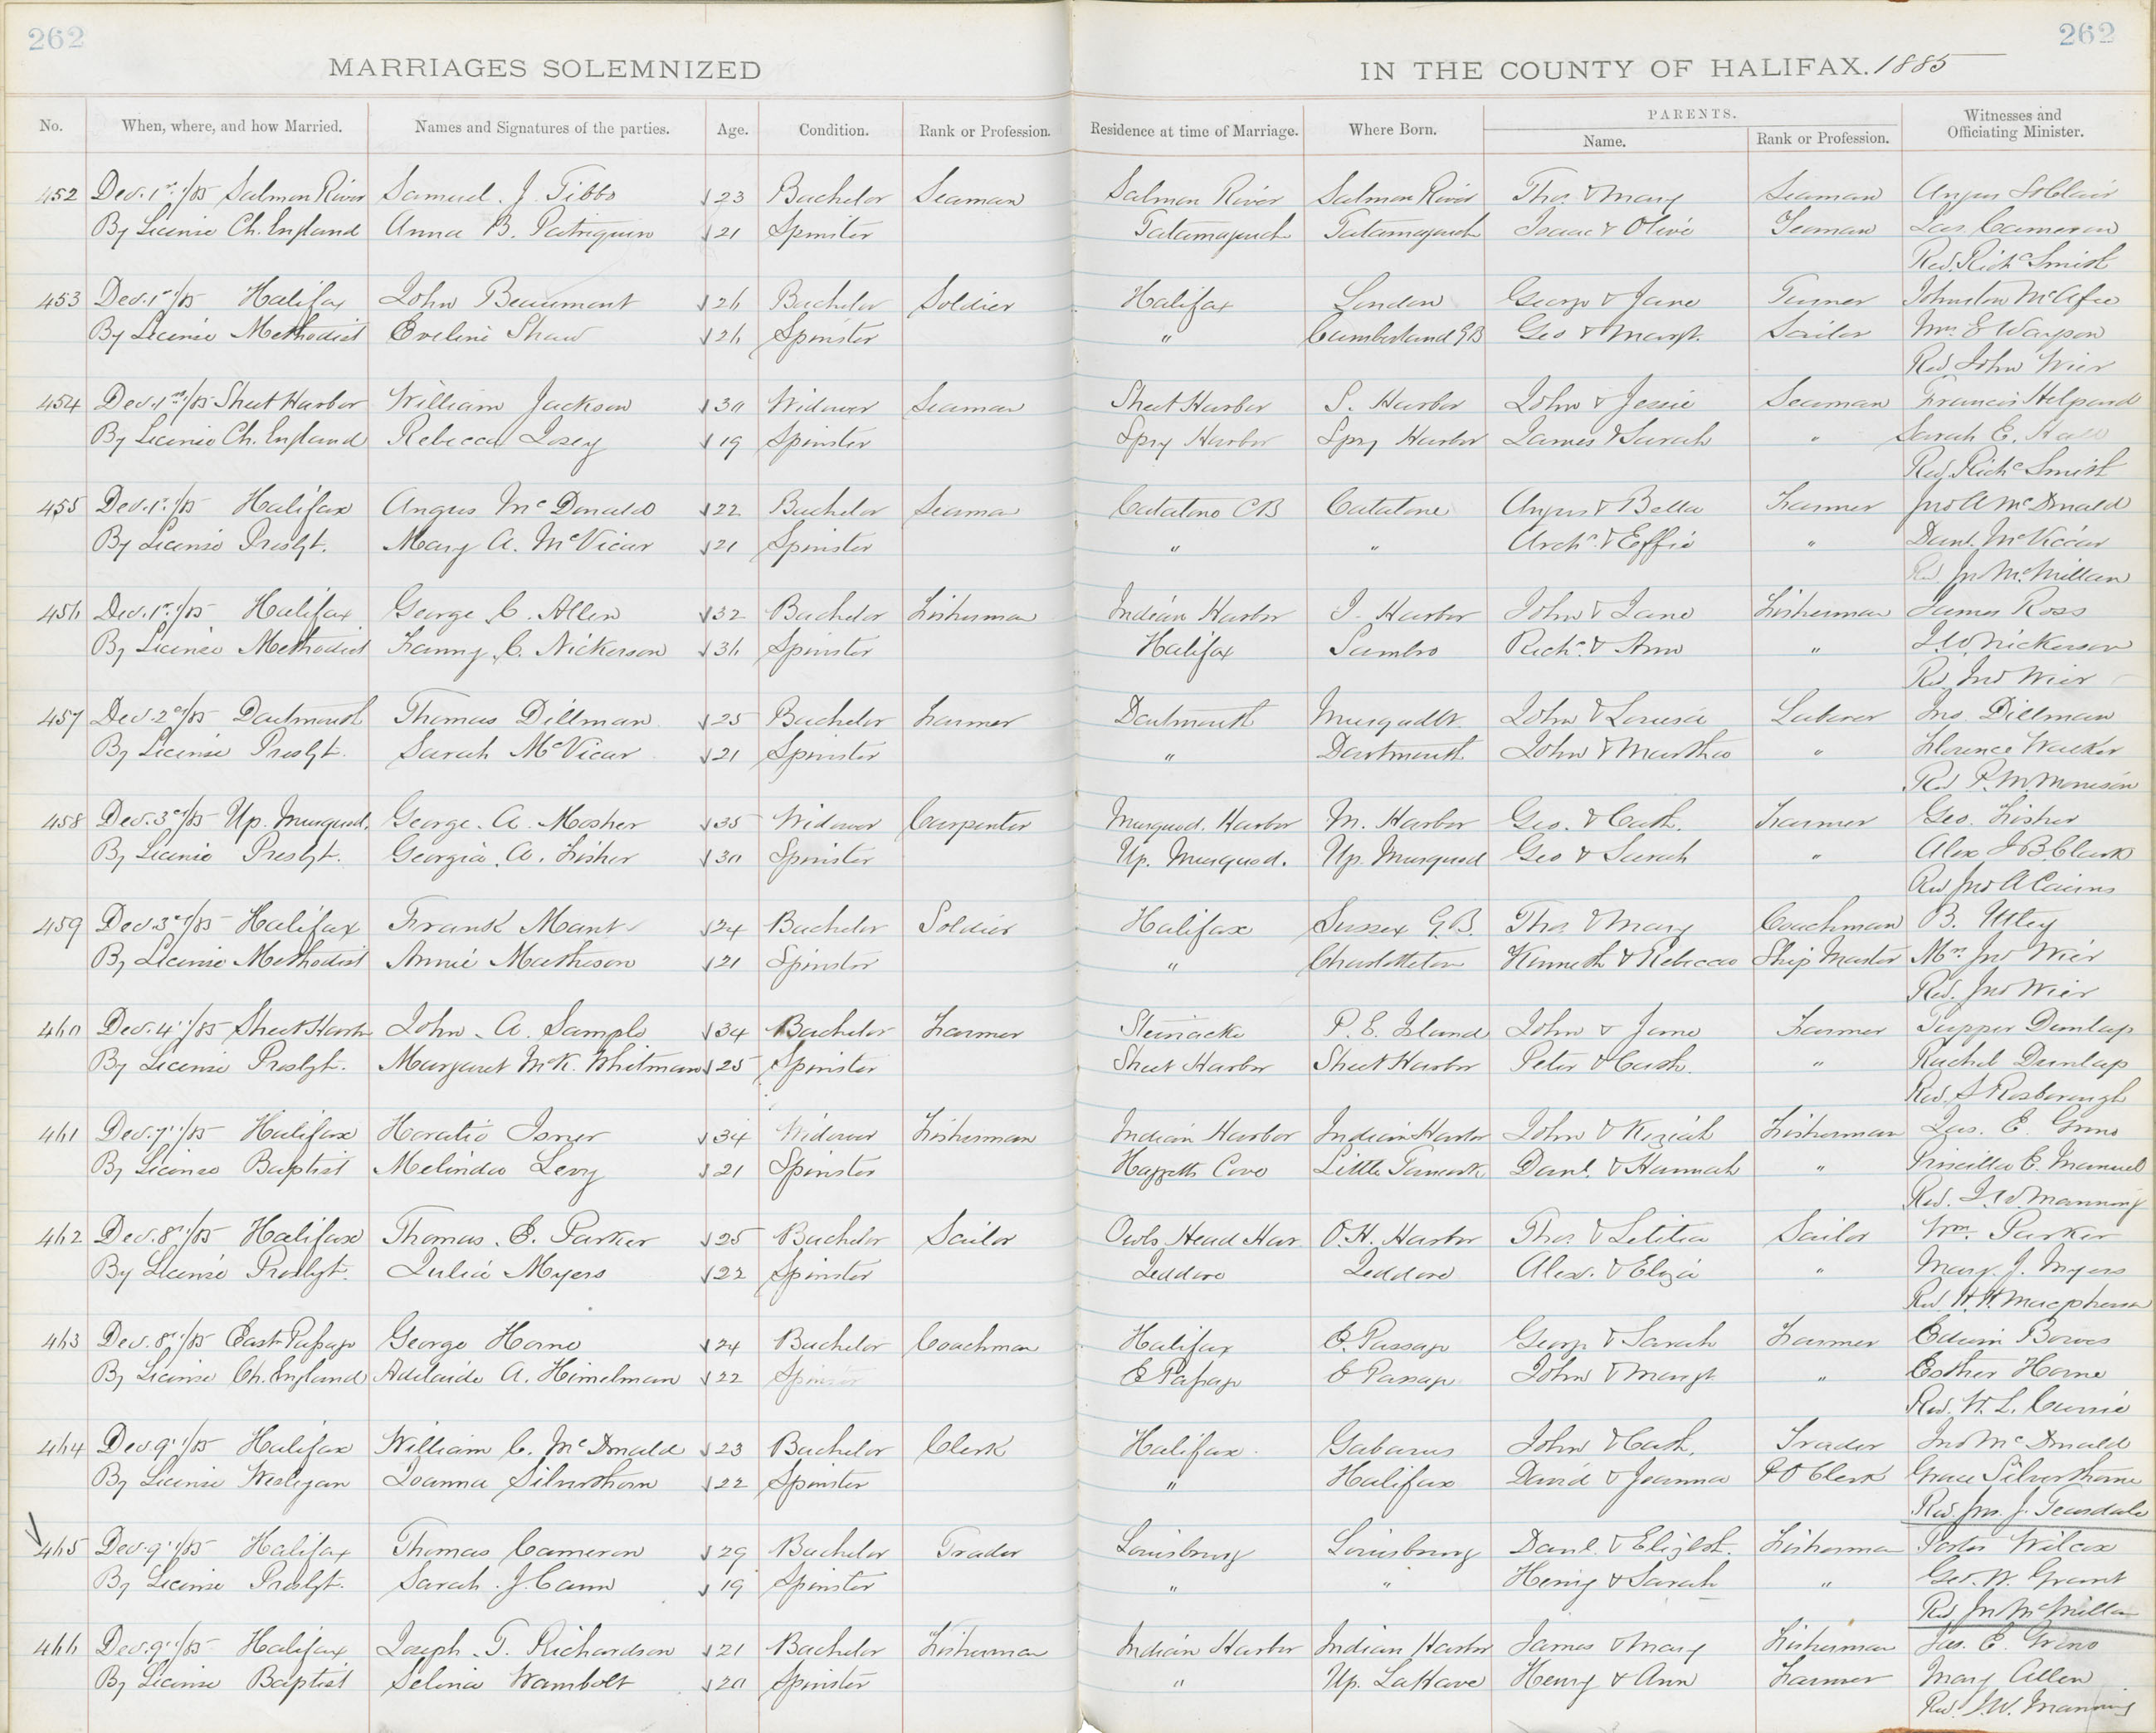 262
262
MARRIAGES SOLEMNIZED
IN THE COUNTY OF HALIFAX. 1885
No. When, where, and how Married. Names and Signatures of the parties. Age. Condition. Rank or Profession. Residence at time of Marriage. Where Born. PARENTS. Name. Rank or Profession. Witnesses and Officiating Minister.
452 Dec. 1st /85 Salmon River Samuel J. Tibbo 23 Bachelor Seaman Salmon River Salmon River Thos & Mary Seaman Angus
By License Ch. England Anna B. Patriquin 21 Spinster Tatamagouch Tatamagouch Isaac & Olive Yeoman Jas. Cameron
Rev. Richd Smith
453 Dec. 1st /85 Halifax John Beaumont 26 Bachelor Soldier Halifax London George & Jane Turner Johnston McAfee
By License Methodist Eveline Shaw 26 Spinster " Cumberland GB Geo & Margt. Sailor
Rev John Wier
454 Dec. 1st /85 Sheet Harbor William Jackson 30 Widower Seaman Sheet Harbor S. Harbor John & Jessie Seaman Francis
By License Ch. England Rebecca Josey 19 Spinster Spry Harbor Spry Harbor James & Sarah " Sarah E. Hall
Rev. Richd Smith
455 Dec. 1st /85 Halifax Angus McDonald 22 Bachelor Seaman Catalone CB Catalone Angus & Bella Farmer Jno A McDonald
By License Presbyt. Mary A. McVicar 21 Spinster " " Archd. & Effie " Danl. McViccar
Rev Jno McMillan
456 Dec. 1st /85 Halifax George C. Allen 32 Bachelor Fisherman Indian Harbor I. Harbor John & Jane Fisherman James Ross
By License Methodist Fanny C. Nickerson 36 Spinster Halifax Sambro Richd. & Ann " J.W. Nickerson
Rev. Jno Wier
457 Dec. 2nd /85 Dartmouth Thomas Dillman 25 Bachelor Farmer Dartmouth Musquodbt. John & Louisa Laborer Jno. Dillman
By License Presbyt. Sarah McVicar 21 Spinster " Dartmouth John & Martha " Florence Walker
Rev P. M Morrison
458 Dec. 3rd /85 Up. Musquod. George A. Mosher 35 Widower Carpenter Musquod. Harbor M. Harbor Geo. & Cath. Farmer Geo. Fisher
By License Presbyt. Georgia A. Fisher 30 Spinster Up. Musquod. Up. Musquod Geo & Sarah " Alex J B. Clark
Rev Jno A Cairns
459 Dec 3rd /85 Halifax Frank Mant 24 Bachelor Soldier Halifax Sussex G.B. Thos. & Mary Coachman B. Utley
By License Methodist Annie Matheson 21 Spinster " Charlotteton Kenneth & Rebecca Ship Master Mrs. Jno Wier
Rev. Jno Wier
460 Dec. 4th /85 Sheet Harbr John A. Sample 34 Bachelor Farmer Steiriacke P. E. Island John & Jane Farmer Tupper Dunlap
By License Presbyt. Margaret McK. Whitman 25 Spinster Sheet Harbor Sheet Harbor Peter & Cath. " Rachel Dunlap
Rev. S Rosborough
461 Dec. 7th /85 Halifax Horatio Isner 34 Widower Fisherman Indian Harbor Indian Harbor John & Keziah Fisherman Jas. E. Grino
By License Baptist Melinda Levy 21 Spinster Haggetts Cove Little Tancook Danl. & Hannah " Priscilla E. Manuel
Rev. J.W. Manning
462 Dec. 8th /85 Halifax Thomas E. Parker 25 Bachelor Sailor Owls Head Har. O.H. Harbor Thos. & Letitia Sailor Wm. Parker
By License Presbyt. Julia Myers 22 Spinster Jeddore Jeddore Alex. & Eliza " Mary J. Myers
Rev H. H. Macpherson
463 Dec. 8th /85 East Passage George Horne 24 Bachelor Coachman Halifax E. Passage George & Sarah Farmer Edwin Bowes
By License Ch. England Adelaide A. Himelman 22 Spinster E Passage E Passage John & Margt " Esther Horne
Rev. W. L. Currie
464 Dec 9th /85 Halifax William C. McDonald 23 Bachelor Clerk Halifax Gabarus John & Cath. Trader Jno McDonald
By License Wesleyan Joanna Silverthorn 22 Spinster " Halifax David & Joanna P O Clerk Grace Silverthorne
Rev. Jno. J. Teasdale
465 Dec. 9th /85 Halifax Thomas Cameron 29 Bachelor Trader Louisburg Louisburg Danl. & Elizbt. Fisherman Porter Wilcox
By License Presbyt. Sarah J. Cann 19 Spinster " " Henry & Sarah " Geo. W. Grant
Rev Jno McMillan
466 Dec. 9th /85 Halifax Joseph T. Richardson 21 Bachelor Fisherman Indian Harbor Indian Harbor James & Mary Fisherman Jas. E. Grino
By License Baptist Selina Wambolt 20 Spinster " Up. LaHave Henry & Ann Farmer Mary Allen
Rev. J.W. Manning